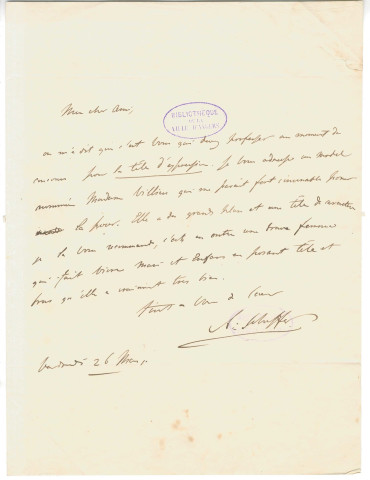 Mon cher Ami,
BIBLIOTHÈQUE
DE LA
VILLE D'ANGERS
on m'a dit que c'est vous qui devez professer au moment du
concours pour la tête d'expression. Je vous adresse un modèle
Madame Villiers qui me parait fort convenable pour
la pose. Elle a de grands et une tête de caractère
je la vous recommande, c'est en outre une brave femme
qui fait vivre mari et enfans en posant tête et
bras qu'elle a vraiment très bien.
tout a vous de cœur
A. Scheffer
Vendredi 26 Mars.